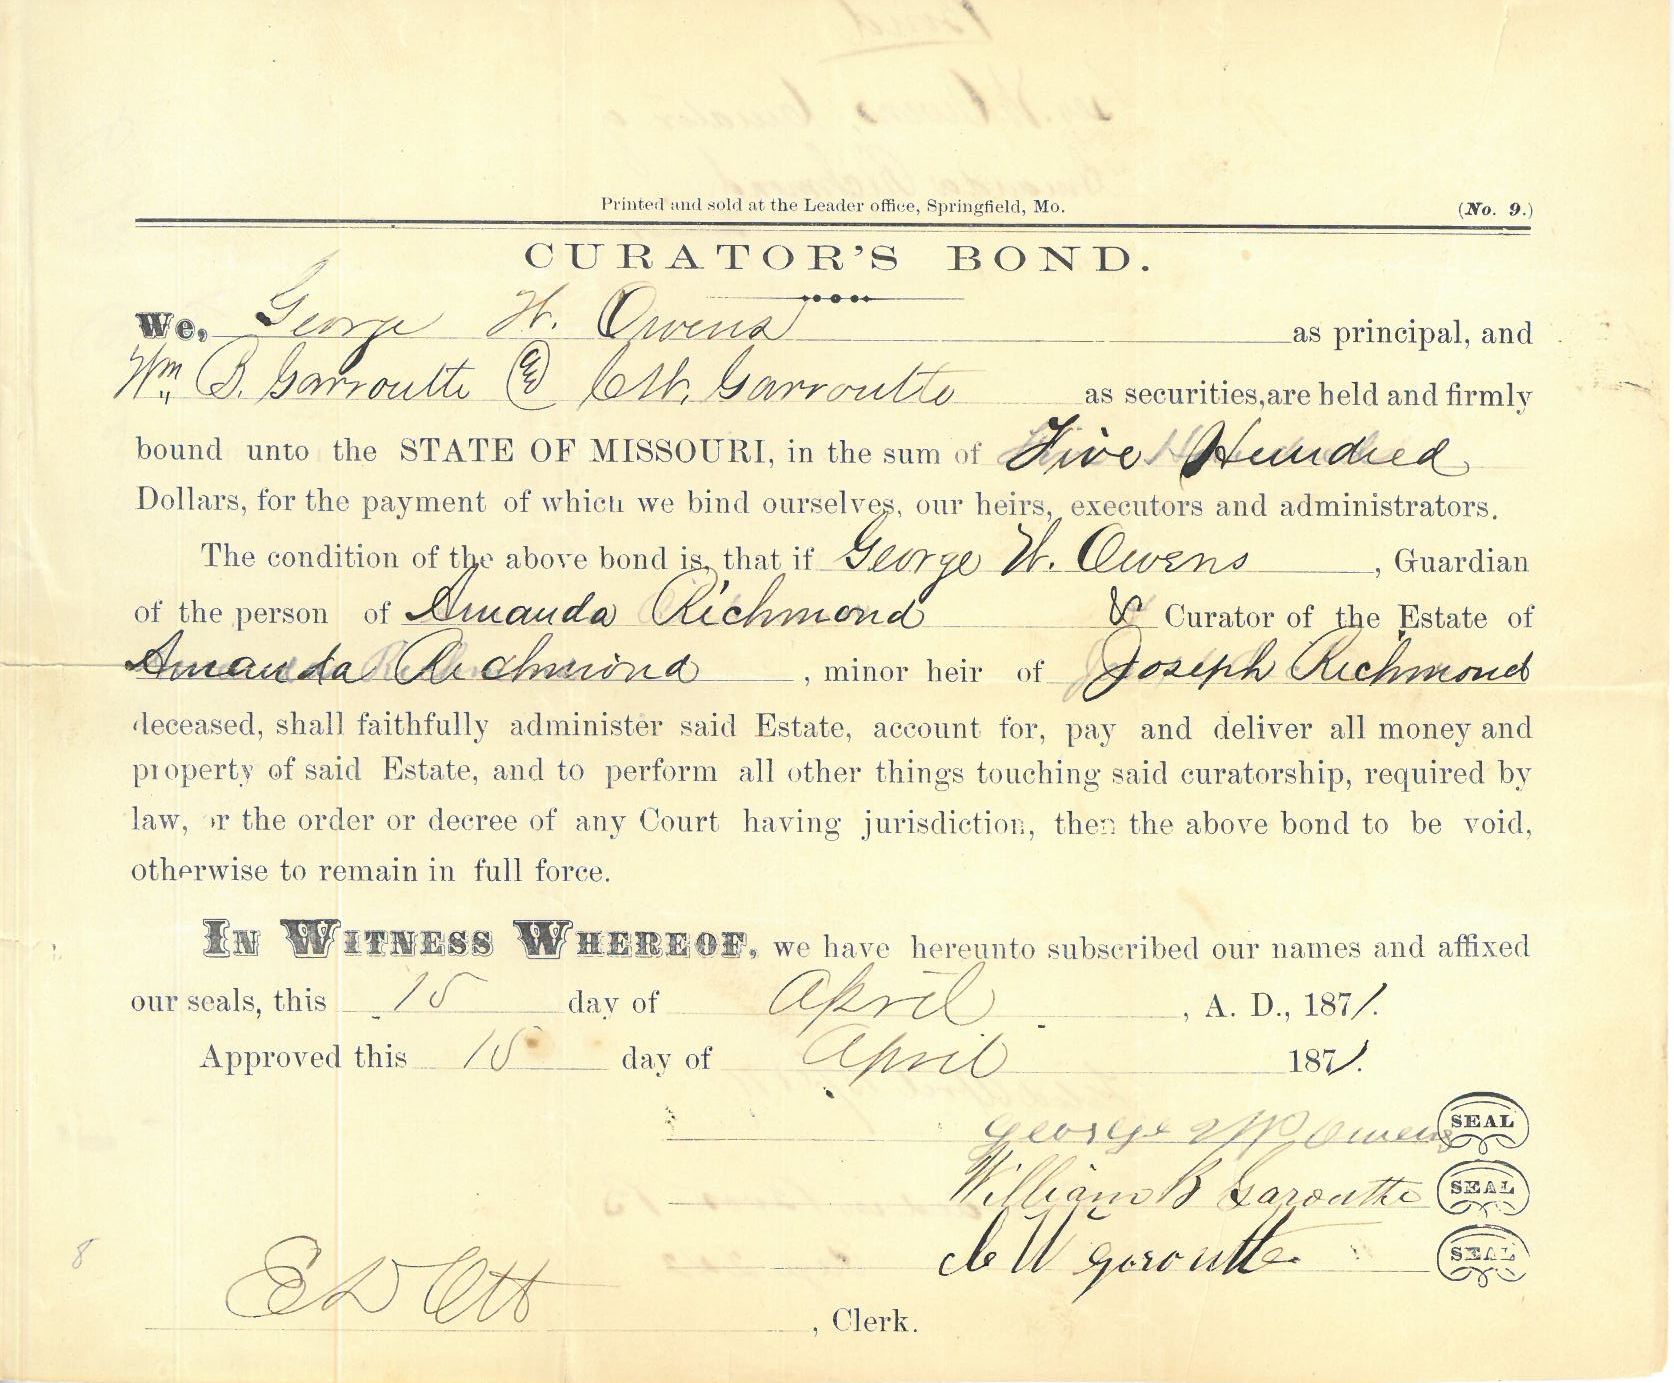 Printed and sold at the Leader office, Springfield, Mo. (No. 9.)
CURATOR'S BOND.
We, George W. Owens as principal, and
Wm B. Garroutte & C.W. Garroutte as securities, are held and firmly
bound unto the STATE OF MISSOURI, in the sum of Five Hundred
Dollars, for the payment of which we bind ourselves, our heirs, executors and administrators.
The condition of the above bond is, that if George W. Owens, Guardian
of the person of Amanda Richmond & Curator of the Estate of
Amanda Richmond, minor heir of Joseph Richmond
deceased, shall faithfully administer said Estate, account for, pay and deliver all money and
property of said Estate, and to perform all other things touching said curatorship, required by
law, or the order or decree of any Court having jurisdiction, then the above bond to be void,
otherwise to remain in full force.
IN WITNESS WHEREOF, we have hereunto subscribed our names and affixed
our seals, this 15 day of April, A. D., 1871.
Approved this 15 day of April 1871.
George W Owens SEAL
William B Garoutte SEAL
C W Garoutte SEAL
8
E D Ott, Clerk.